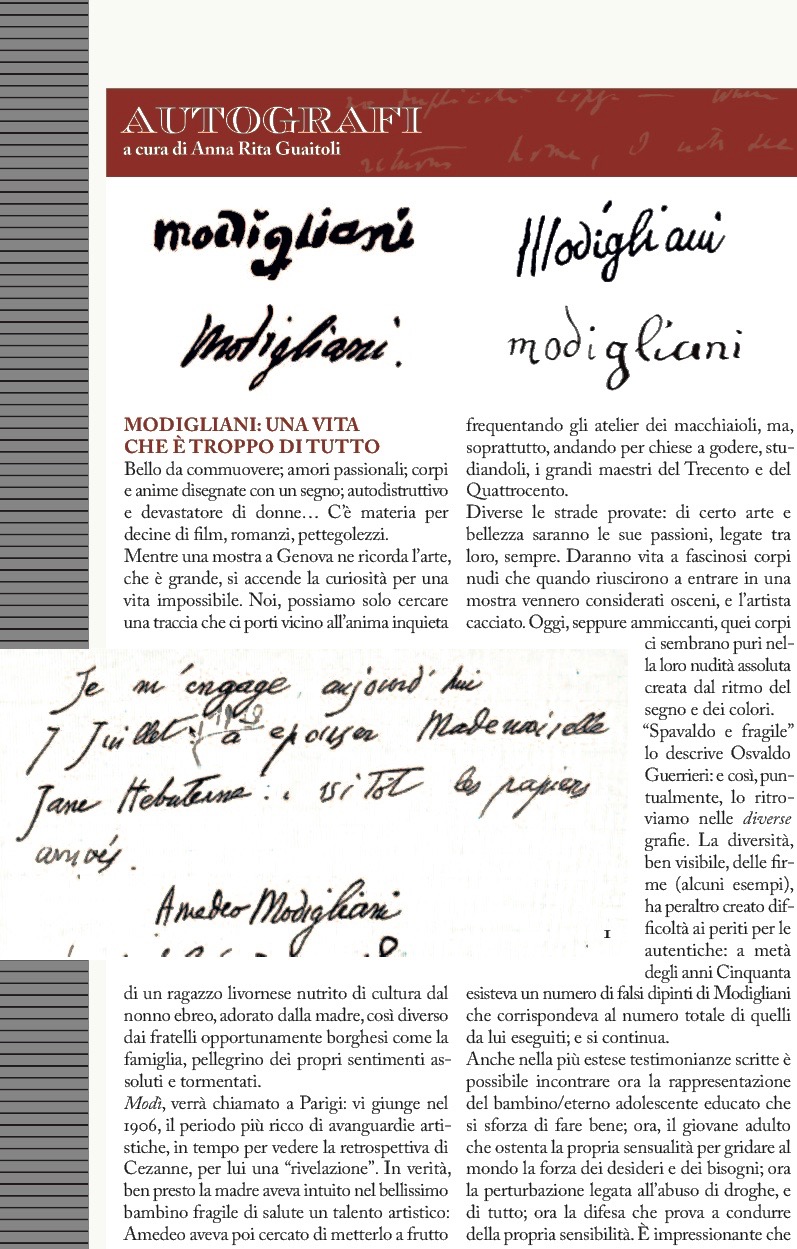 AUTOGRAFI
a cura di Anna Rita Guaitoli
home, I
modigliani
Modigliani
Modigliani.
modigliani
MODIGLIANI: UNA VITA
CHE È TROPPO DI TUTTO
Bello da commuovere; amori passionali; corpi
e anime disegnate con un segno; autodistruttivo
e devastatore di donne… C'è materia per
decine di film, romanzi, pettegolezzi.
Mentre una mostra a Genova ne ricorda l'arte,
che è grande, si accende la curiosità per una
vita impossibile. Noi, possiamo solo cercare
una traccia che ci porti vicino all'anima inquieta
Je m'engage aujourd'hui
7 Juillet 1919 a epouser Mademoiselle
Jane Hebuterne les papiers
Amedeo Modigliani
1
di un ragazzo livornese nutrito di cultura dal
nonno ebreo, adorato dalla madre, così diverso
dai fratelli opportunamente borghesi come la
famiglia, pellegrino dei propri sentimenti as-
soluti e tormentati.
Modì, verrà chiamato a Parigi: vi giunge nel
1906, il periodo più ricco di avanguardie arti-
stiche, in tempo per vedere la retrospettiva di
Cezanne, per lui una “rivelazione”. In verità,
ben presto la madre aveva intuito nel bellissimo
bambino fragile di salute un talento artistico:
Amedeo aveva poi cercato di metterlo a frutto
frequentando gli atelier dei macchiaioli, ma,
soprattutto, andando per chiese a godere, stu-
diandoli, i grandi maestri del Trecento e del
Quattrocento.
Diverse le strade provate: di certo arte e
bellezza saranno le sue passioni, legate tra
loro, sempre. Daranno vita a fascinosi corpi
nudi che quando riuscirono a entrare in una
mostra vennero considerati osceni, e l'artista
cacciato. Oggi, seppure ammiccanti, quei corpi
ci sembrano puri nel-
la loro nudità assoluta
creata dal ritmo del
segno e dei colori.
“Spavaldo e fragile”
lo descrive Osvaldo
Guerrieri: e così, pun-
tualmente, lo ritro-
viamo nelle diverse
grafie. La diversità,
ben visibile, delle fir-
me (alcuni esempi),
ha peraltro creato dif-
ficoltà ai periti per le
autentiche: a metà
degli anni Cinquanta
esisteva un numero di falsi dipinti di Modigliani
che corrispondeva al numero totale di quelli
da lui eseguiti; e si continua.
Anche nella più estese testimonianze scritte è
possibile incontrare ora la rappresentazione
del bambino/eterno adolescente educato che
si sforza di fare bene; ora, il giovane adulto
che ostenta la propria sensualità per gridare al
mondo la forza dei desideri e dei bisogni; ora
la perturbazione legata all'abuso di droghe, e
di tutto; ora la difesa che prova a condurre
della propria sensibilità. È impressionante che